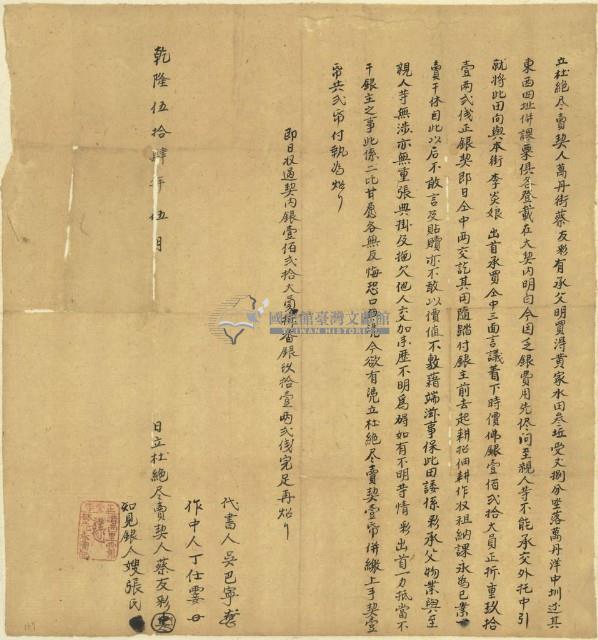 立杜絕尽賣契人萬丹街蔡友彩有承父明買得黃家水田叁坵受丈捌分坐落萬丹洋中圳
東西四址併課粟俱各登載在大契內明白今因乏銀費用先俢问至親人等不能承交外托中引
就將此田向與本街李炎娘出首承買仝中三面言議着下時價佛銀壹佰弍拾大員正折重玖拾
壹两弍伐正銀契即日仝中两交訖其田隨踏付銀主前去起耕招佃耕作收租納課永為己業一
賣千休自此以后不敢言及貼贖亦不敢以價值不敷藉端滋事保此田諉係彩承父物業與至
親人等無涉亦無重張典掛及拖欠他人交加來歷不明為碍如有不明等情彩出首一力抵當不
干銀主之事此係二比甘愿各無反悔恐口無憑今欲有憑立杜絕尽賣契壹帋併繳上手契壹
帋共弍帋付執為炤
即日收過契內銀壹佰弍拾大員折番銀玖拾壹两弍伐完足再炤
國史館臺灣文獻館
TAIWAN HISTORICA
代書人吳巴寧
作中人丁仕
乾隆伍拾肆年伍月
日立杜絕尽賣契人蔡友彩
知見銀人嫂張氏